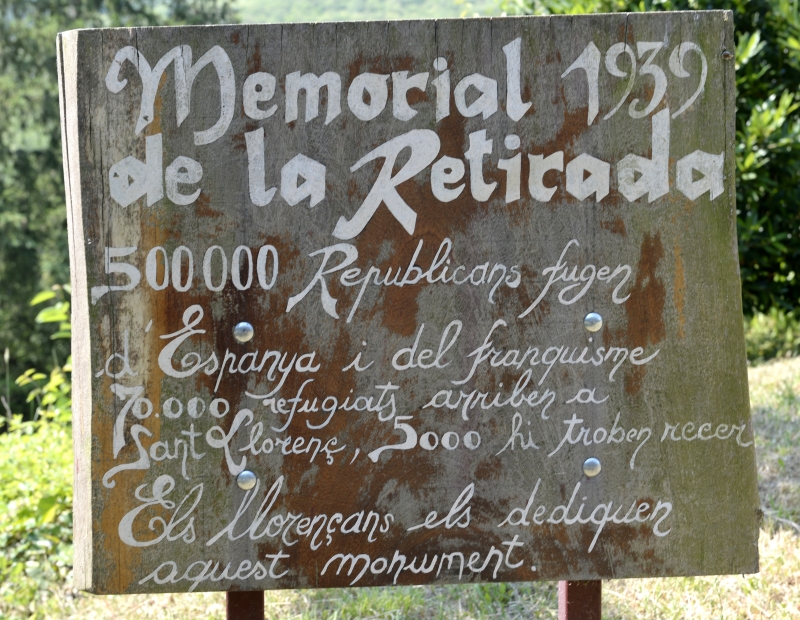 Memorial 1939
de la Retirada
500000 Republicans fugen
d'Espanya i del franquisme
70.000 refugiats arriben a
Sant Llorenç, 5000 hi troben recer
Els llorençans els dediquen
aquest monument.